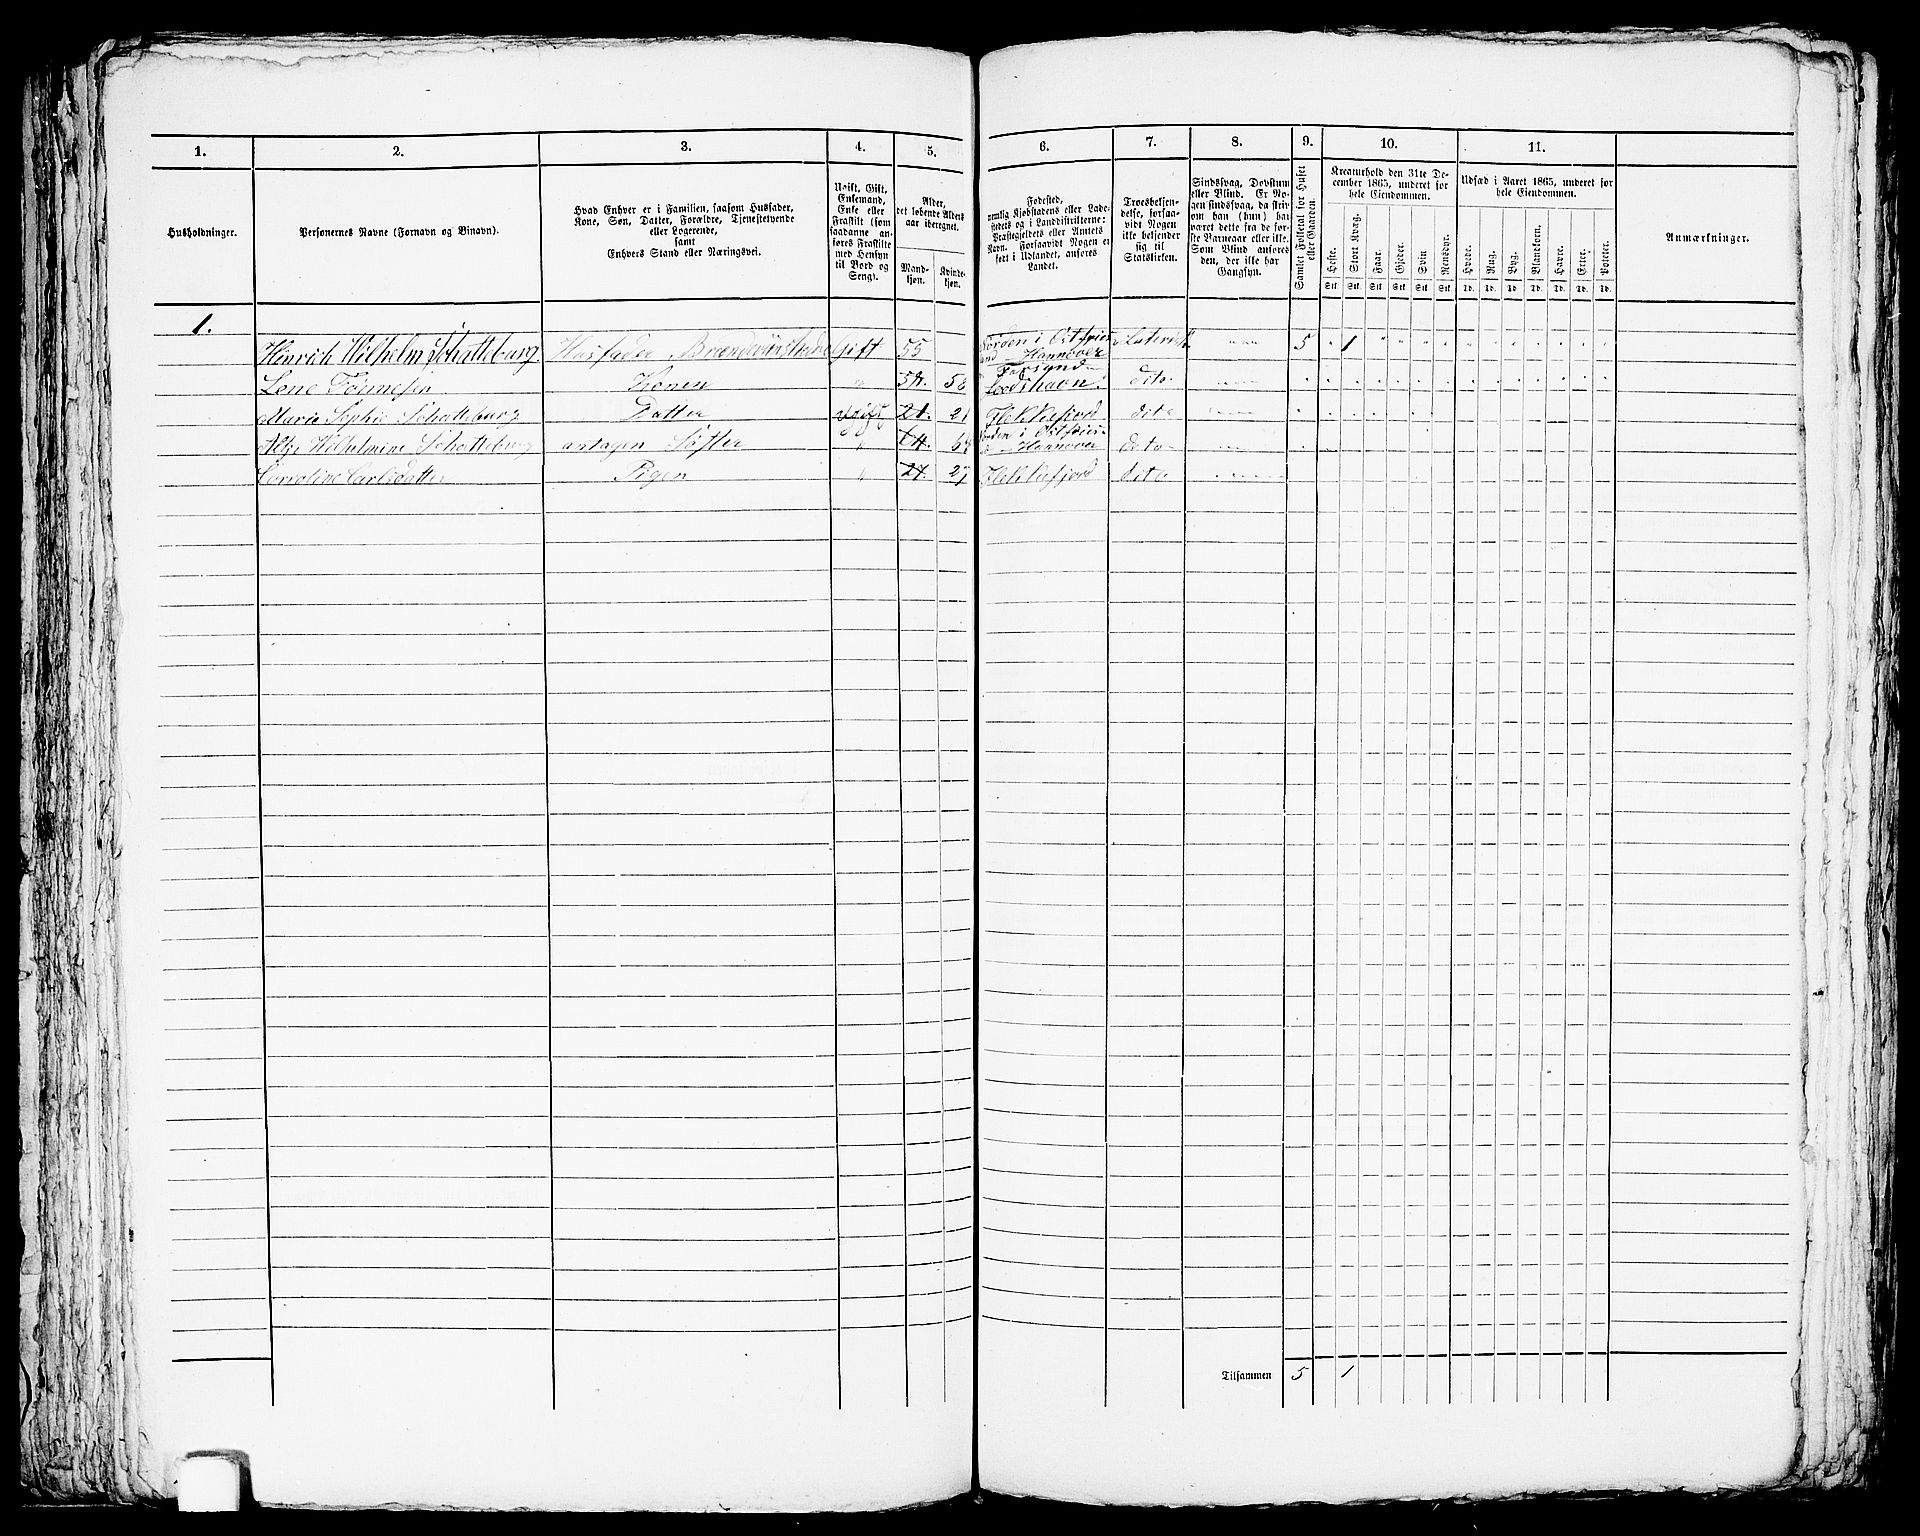 1. 2. 3. 4. 5. 6. 7. 8. 9. 10. 11.
Husholdninger.
Personernes Navne (Fornavn og Binavn).
Hvad Enhver er i Familien, saasom Husfader,
Kone, Søn, Datter, Forældre, Tjenestetyende
eller Logerende,
samt
Enhvers Stand eller Næringsvei.
Ugift, Gift,
Enkemand,
Enke eller
Fraskilt (som
saadanne an-
føres Fraskilte
med Hensyn
til Bord og
Seng).
Alder,
det løbende Alders-
aar iberegnet.
Mand-
kjøn.
Kvinde-
kjøn.
Fødested,
nemlig Kjøbstadens eller Lade-
stedets og i Landdistrikterne:
Præstegjeldets eller Amtets
Navn. Forsaavidt Nogen er
født i Udlandet, anføres
Landet.
Troesbekjen-
delse, forsaa-
vidt Nogen
ikke bekjender
sig til
Statskirken.
Sindssvag, Døvstum
eller Blind. Er No-
gen sindssvag, da skri-
ves om han (hun) har
været dette fra de før-
ste Barneaar eller ikke.
Som Blind anføres
den, der ikke har
Gangsyn.
Samlet Folketal for Huset
eller Gaarden.
Kreaturhold den 31te De-
cember 1865, underet for
hele Eiendommen.
Heste. Stort Kvæg. Faar. Gjeder. Svin Rensdyr.
Stk. Stk. Stk. Stk. Stk. Stk.
Udsæd i Aaret 1865, underet for
hele Eiendommen.
Hvede. Rug. Byg. Blandkorn. Havre. Erter. Poteter.
Td. Td. Td. Td. Td. Td. Td.
Anmærkninger.
1.
Hinrich Wilhelm Schatteburg Husfader Gift 55 Norden i Ostfries Luterisk 5 1
land Hannover
Farsund
Lene Tønnesen Konen " 58. 58 Loeshavn. dito
Marie Sophie Schatteburg Datter Ugift 21. 21 Flekkefjord dito
Wilhelmine Schatteburg antagen Søster " 64. 64 Norden i Ostfries- dito
Hannover
Carlsdatter Pigen " 27. 27 Flekkefjord dito
Tilsammen 5 1